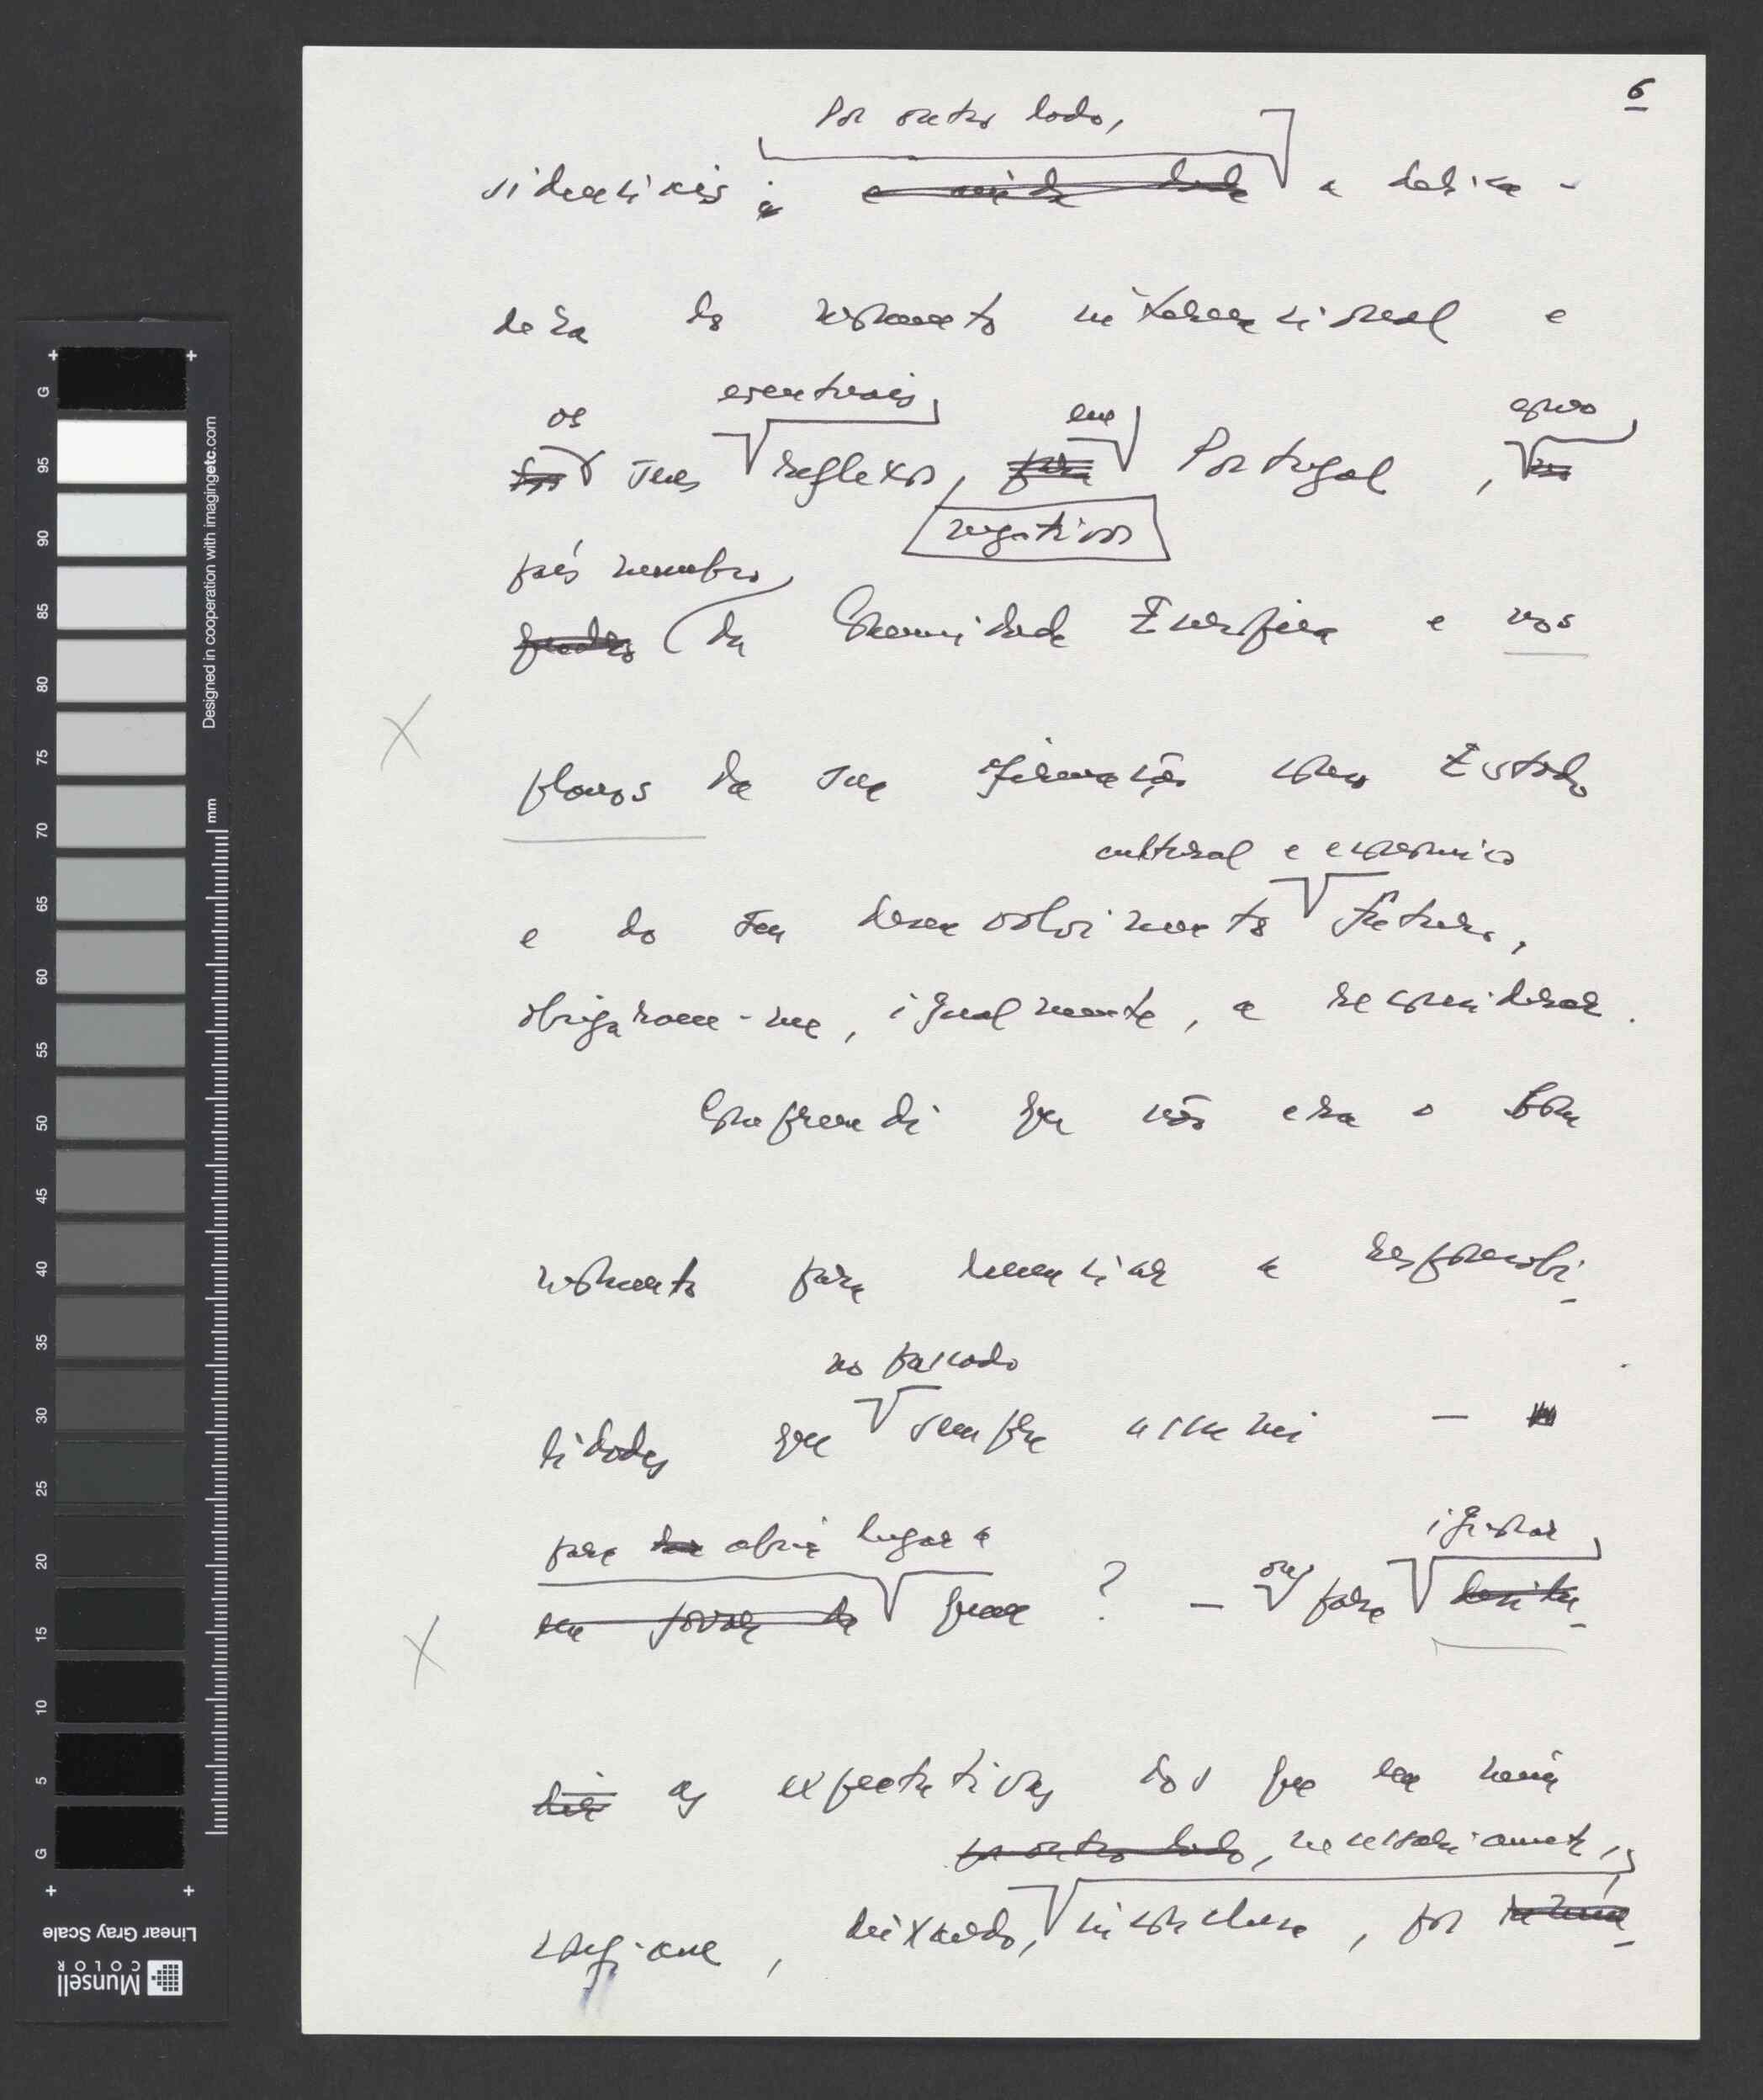 6
Por outro lado,
sidenciais; a delica-
deza do momento internacional e
os eventuais em como
seus reflexos, Portugal,
negativos
país membro
da Comunidade Europeia e nos
planos da sua afirmação como Estado
cultural e económico
e do seu desenvolvimento futuro,
obrigaram-me, igualmente, a reconsiderar.
Compreendi que não era o bom
momento para renunciar a responsabi-
no passado
lidades que sempre assumi —
para dar abrir lugar a
em favor de quem? — ou para ignorar
as expectativas dos que em mim
por outro lado, necessariamente,
confiam, deixando, inconclusa, por
Designed in cooperation with imagingetc.com
mm
G 95 90 85 80 75 70 65 60 55 50 45 40 35 30 25 20 15 10 5 G
Linear Gray Scale
Munsell
COLOR